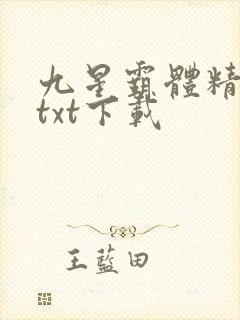 九星霸體精
txt下載
王藍田